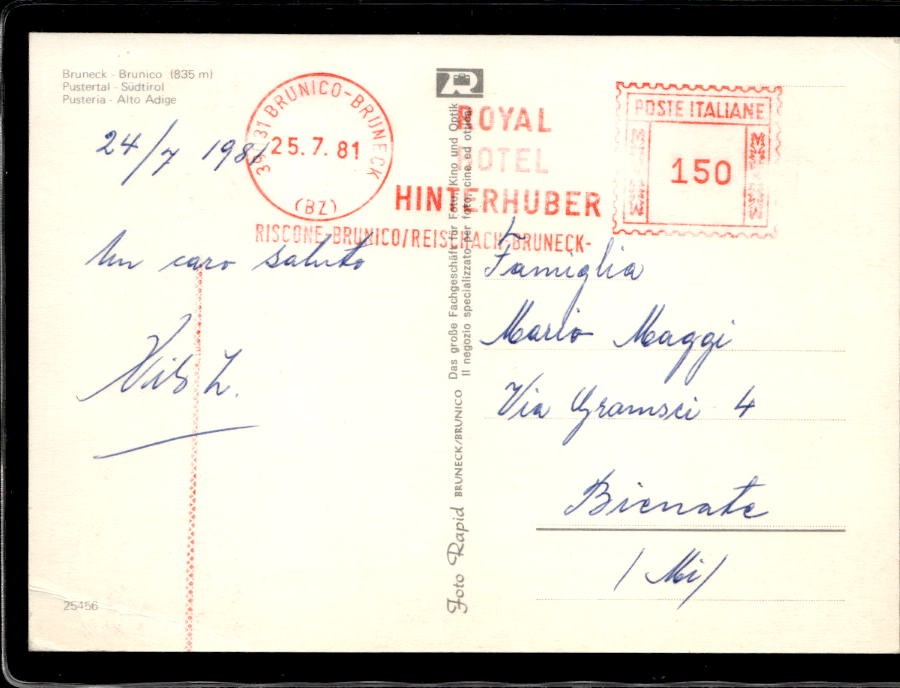 Bruneck - Brunico (835 m)
Pustertal - Südtirol
Pusteria - Alto Adige
24/7 1981
39031 BRUNICO-BRUNECK
25.7.81
(BZ)
ROYAL
HOTEL
HINTERHUBER
RISCONE-BRUNICO/REISCHACH-BRUNECK-
POSTE ITALIANE
150
Un caro saluto
Foto Rapid BRUNECK/BRUNICO
Das große Fachgeschäft für Foto, Kino und Optik
Il negozio specializzato per foto, cine ed ottica
Famiglia
Mario Maggi
Via Gramsci 4
Bienate
(Mi)
25456